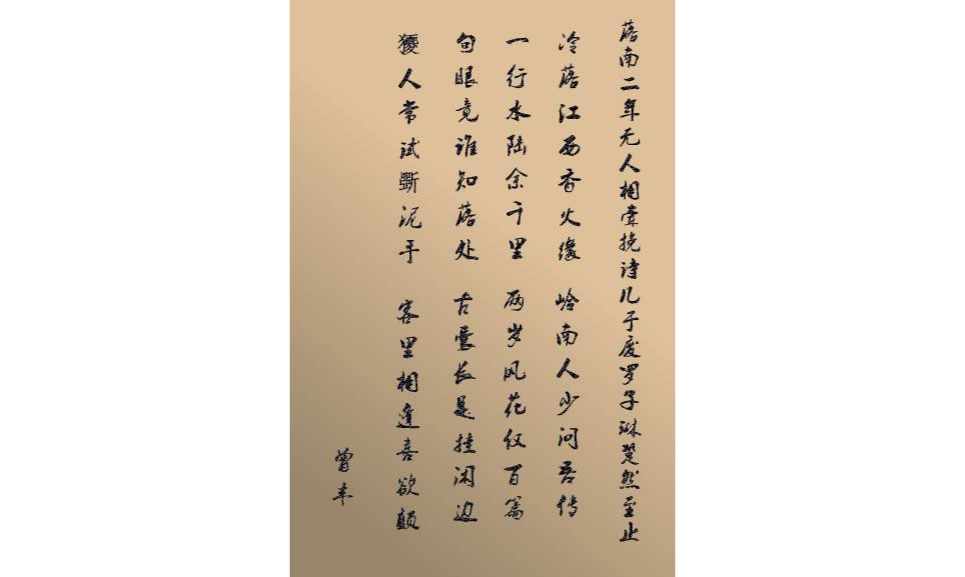 落南二年无人相牵挽诗几于废罗子琳跫然至止
冷落江西香火缘 岭南人少问吾传
一行水陆余千里 两岁风花仅百篇
句眼竟谁知落处 古囊长是挂闲边
獿人常试斲泥手 客里相逢喜欲颠
曾丰